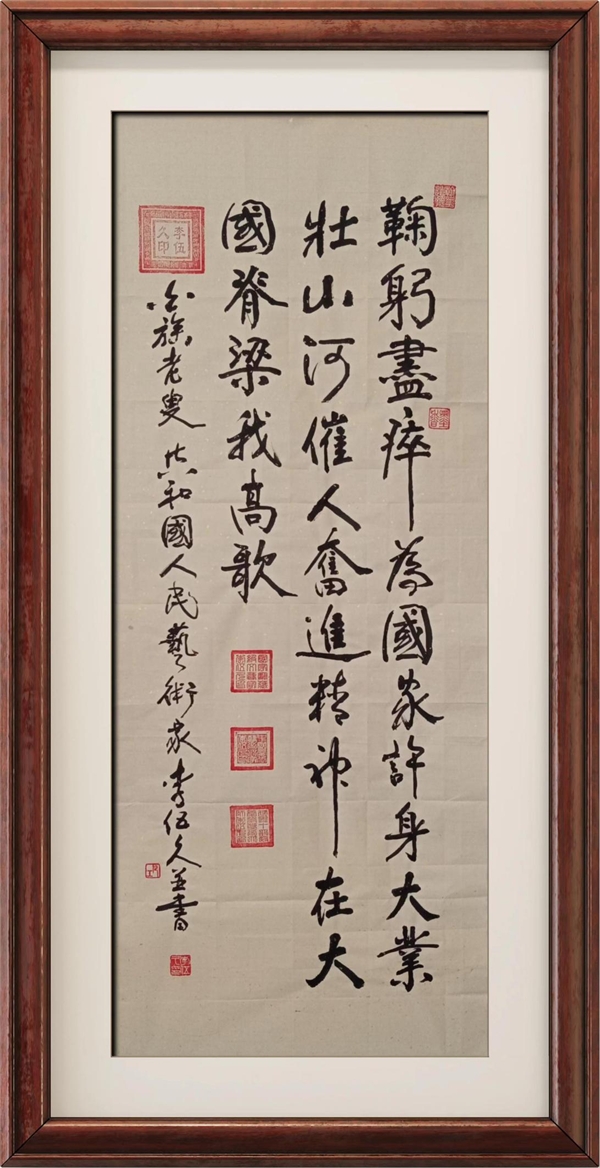 鞠躬盡瘁為國家許身大業
壯山河催人奮進精神在大
國脊梁我高歌
族老叟共和國人民藝術家李伍久並書
李伍久印